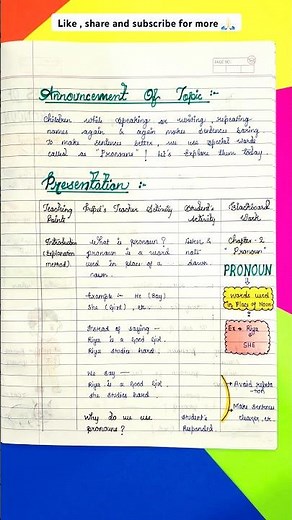 Like , share and subscribe for more 🙏
PAGE NO.
Announcement Of Topic :-
Children while speaking or writing, repeating
names again & again makes sentence boring
to make sentences better, we use special words
called as "Pronouns"! Let's Explore them Today.
Presentation :-
Teaching Point Pupil's Teacher Activity Student's Activity Blackboard Work
Introduction What is pronoun? Listen & Chapter - 2
(Explanation pronoun is a word note "Pronoun"
method) used in place of a down.
noun. PRONOUN
Example :- He (Boy) words used
She (Girl), etc. in Place of Noun
Instead of saying - Ex → Riya
Riya is a Good Girl. ↓
Riya studies hard. SHE
We Say -
Riya is a Good Girl → Avoid repetat
she studies hard. -ion
→ More sentence
Why do we use Student's clearer, etc.
pronouns? Responded